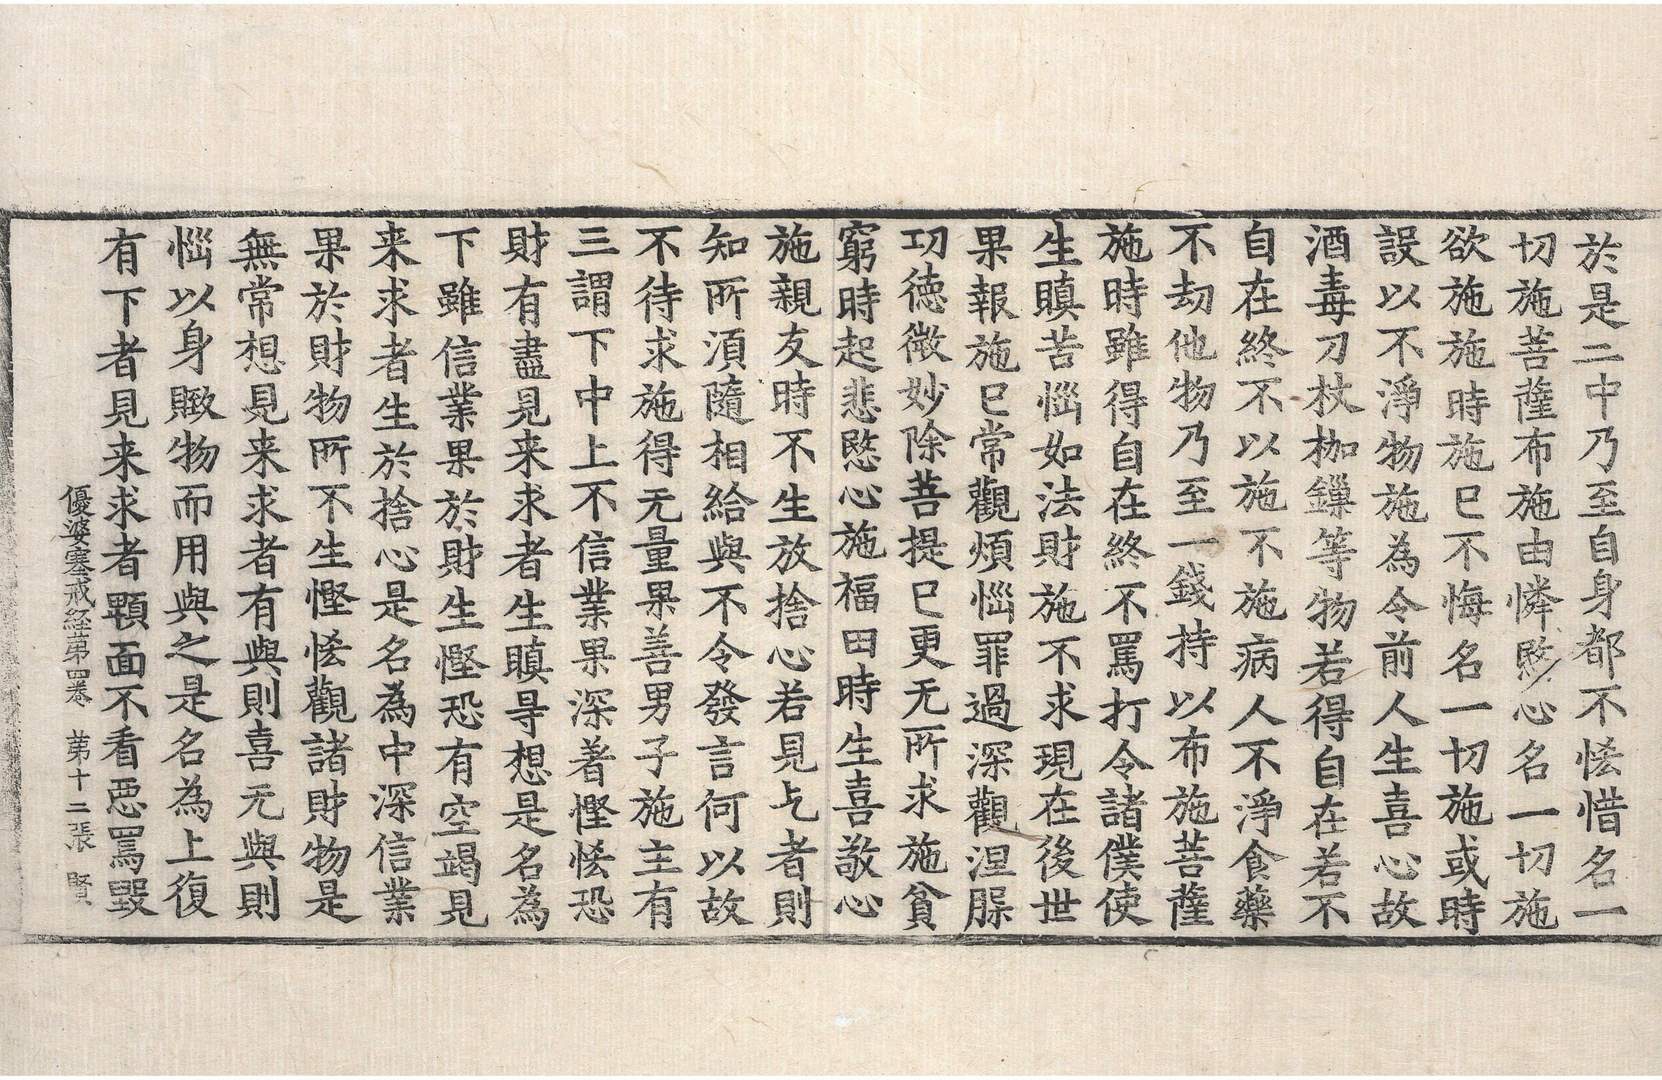 於是二中乃至自身都不恡惜名一
切施菩薩布施由憐愍心名一切施
欲施施時施已不悔名一切施或時
設以不淨物施為令前人生喜心故
酒毒刀杖枷鏁等物若得自在若不
自在終不以施不施病人不淨食藥
不劫他物乃至一錢持以布施菩薩
施時雖得自在終不罵打令諸僕使
生瞋苦惱如法財施不求現在後世
果報施已常觀煩惱罪過深觀涅槃
功德微妙除菩提已更无所求施貧
窮時起悲愍心施福田時生喜敬心
施親友時不生放捨心若見乞者則
知所湏隨相給與不令發言何以故
不待求施得无量果善男子施主有
三謂下中上不信業果深著慳恡恐
財有盡見来求者生瞋㝵想是名為
下雖信業果於財生慳恐有空竭見
来求者生於捨心是名為中深信業
果於財物所不生慳恡觀諸財物是
無常想見来求者有與則喜无與則
惱以身貿物而用與之是名為上復
有下者見来求者顰面不看惡罵毀
優婆塞戒經苐四卷 苐十二張 賢